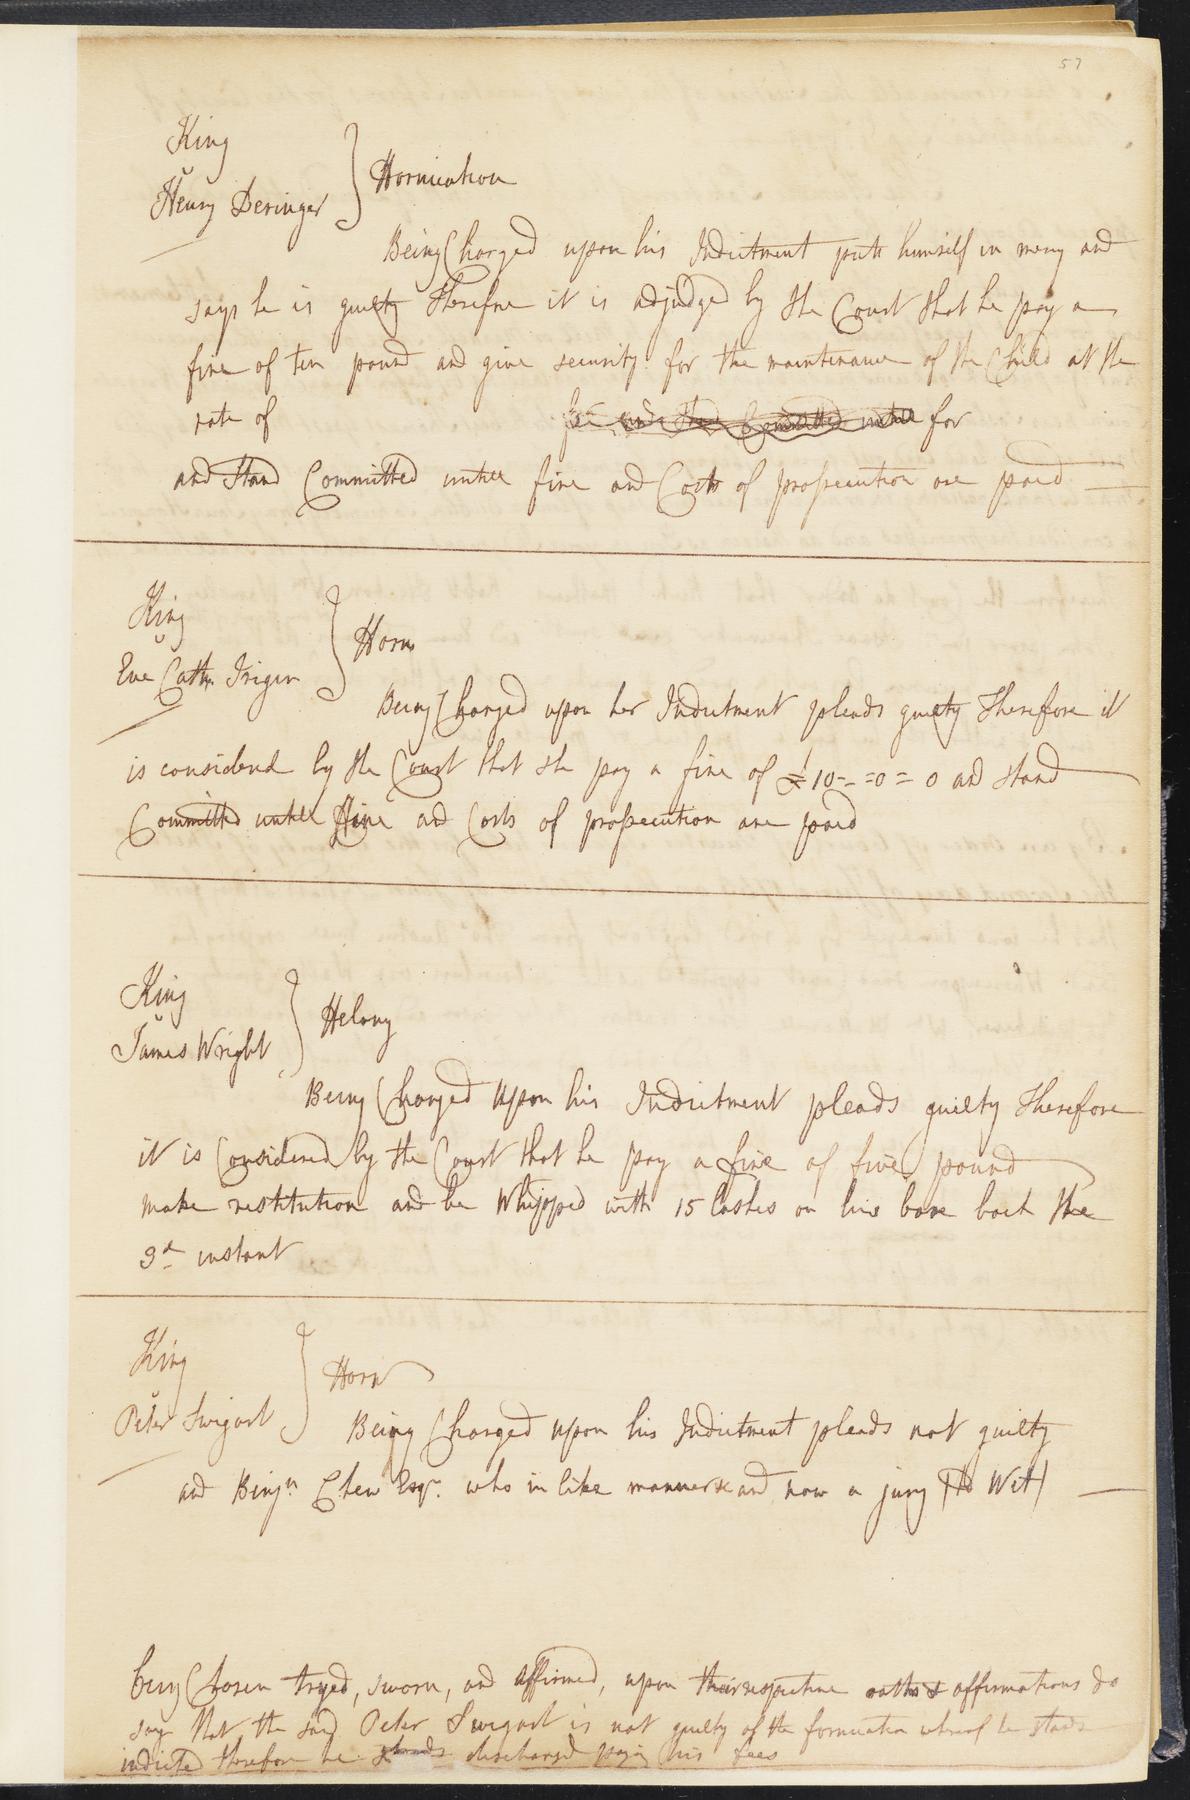 57
King
v
Henry Deringer } ffornication
Being Charged upon his Indictment puts himself in mercy and
says he is guilty Therefore it is adjudged by the Court that he pay a
fine of ten pound and give security for the maintenance of the Child at the
rate of for
and Stand Committed untill fine and Costs of prossecution are paid
King
v
Eve Cath. Irigin } fforn
Being Charged upon her Indictment pleads guilty Therefore it
is considered by the Court that she pay a fine of £10=0=0 and stand
Committed untill ffine and Costs of prossecution are paid
King
v
James Wright } ffelony
Being Charged upon his Indictment pleads guilty Therefore
it is Considered by the Court that he pay a fine of five pound
make restitution and be Whipped with 15 lashes on his bare back the
3d instant
King
v
Peter Swigart } fforn
Being Charged upon his Indictment pleads not guilty
and Binjn Chew Esqr. who in like manner &c and now a jury (To Wit)
being Chosen tryed, sworn, and affirmed, upon their respective oaths & affirmations do
say that the said Peter Swigart is not guilty of the fornication whereof he stands
indicted therefore he discharged paying his fees